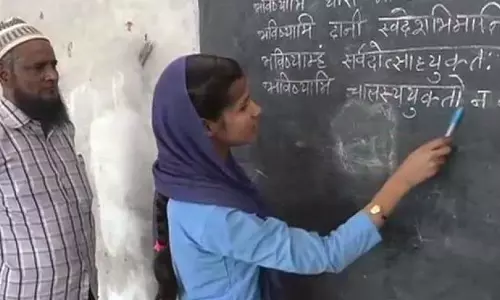 भविष्यामि
भविष्यामि दानी स्वदेशभिमानि
भविष्याम्हं सर्वदोत्साहयुक्तः
भविष्यामि चालस्ययुक्तो न